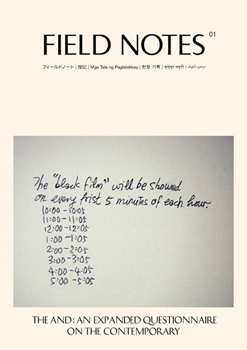 FIELD NOTES 01
フィールドノート | 剳記 | Mga Tala ng Paglalakbay | 현장 기록 |
The "black film" will be showed
on every frist 5 minutes of each hour
10:00 - 10:05
11:00 - 11:05
12:00 - 12:05
1:00 - 1:05
2:00 - 2:05
3:00 - 3:05
4:00 - 4:05
5:00 - 5:05
THE AND: AN EXPANDED QUESTIONNAIRE
ON THE CONTEMPORARY